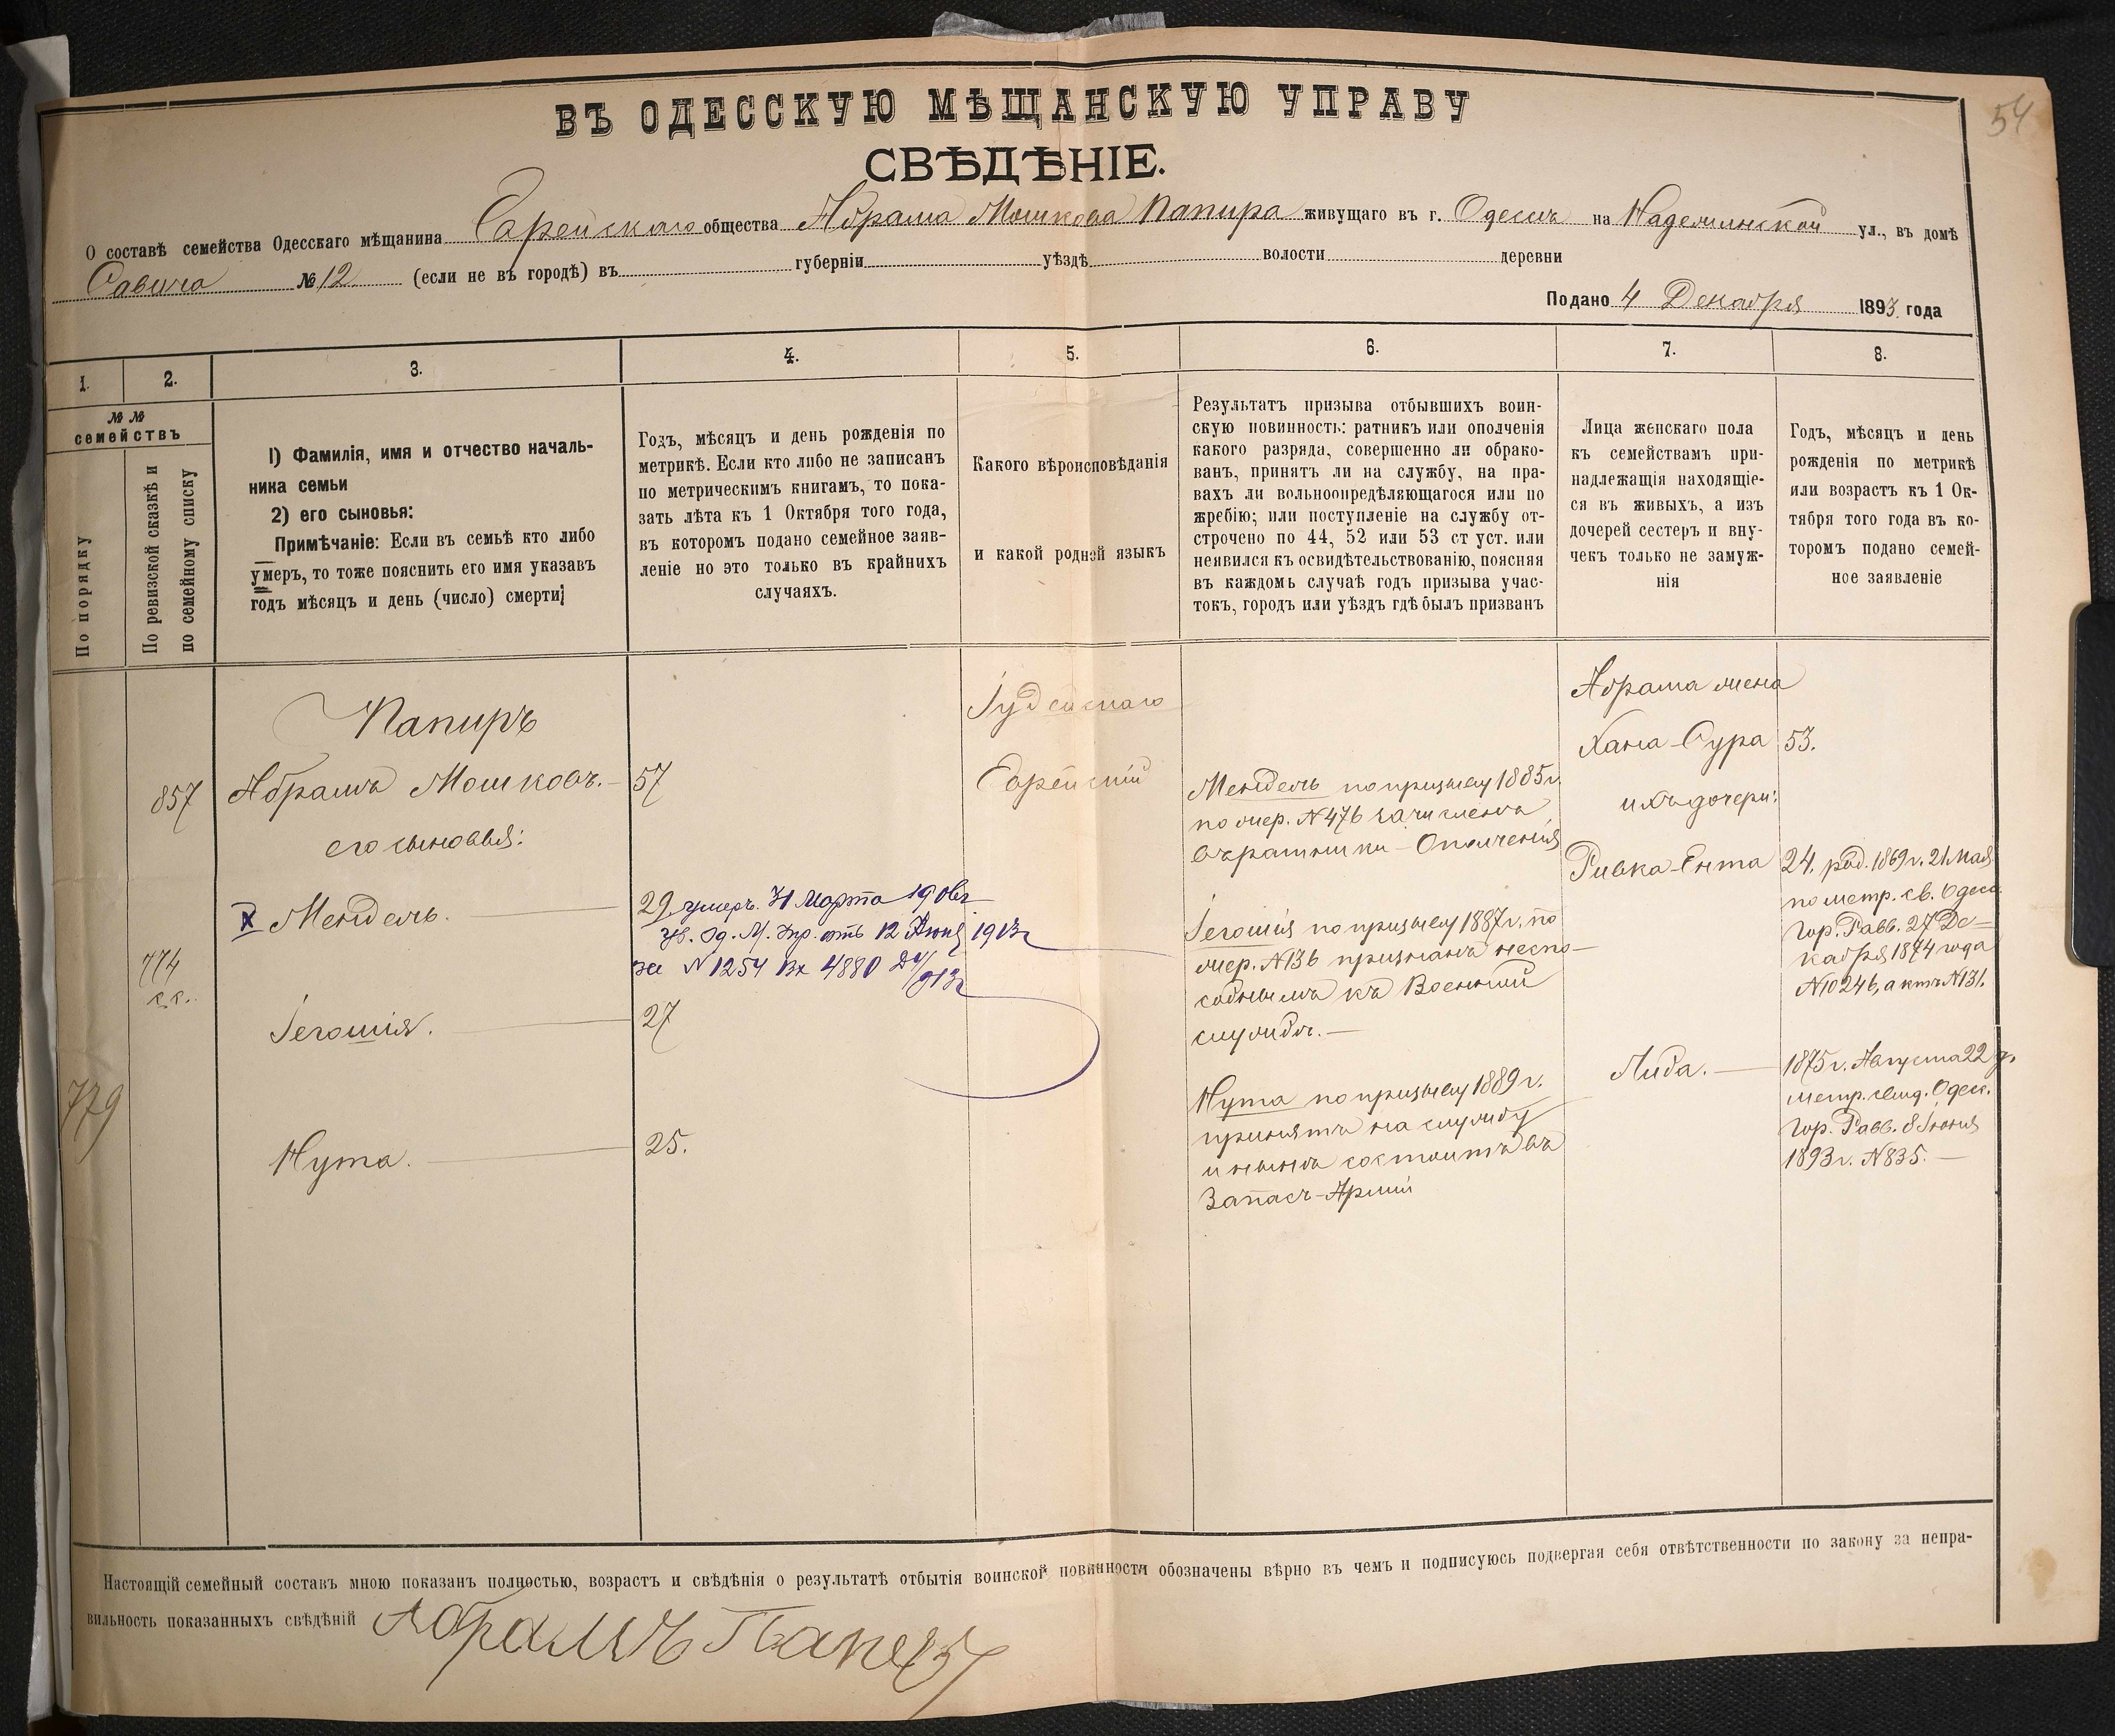 54
ВЪ ОДЕССКУЮ МѢЩАНСКУЮ УПРАВУ
СВѢДѢНІЕ.
О составѣ семейства Одесскаго мѣщанина Еврейскаго общества Абрама Мошкова Папира живущаго въ г. Одессѣ на Надежинской ул., въ домѣ
Савича № 12 (если не въ городѣ) въ губерніи уѣздѣ волости деревни
Подано 4 Декабря 1893 года
1.
2.
3.
4.
5.
6.
7.
8.
№ №
семействъ
По порядку
По ревизской сказкѣ и
по семейному списку
1) Фамилія, имя и отчество началь-
ника семьи
2) его сыновья:
Примѣчаніе: Если въ семьѣ кто либо
умеръ, то тоже пояснить его имя указавъ
годъ мѣсяцъ и день (число) смерти;
Годъ, мѣсяцъ и день рожденія по
метрикѣ. Если кто либо не записанъ
по метрическимъ книгамъ, то пока-
зать лѣта къ 1 Октября того года,
въ которомъ подано семейное заяв-
леніе но это только въ крайнихъ
случаяхъ.
Какого вѣроисповѣданія
и какой родной языкъ
Результатъ призыва отбывшихъ воин-
скую повинность: ратникъ или ополченія
какого разряда, совершенно ли обрако-
ванъ, принятъ ли на службу, на пра-
вахъ ли вольноопредѣляющагося или по
жребію; или поступленіе на службу от-
строчено по 44, 52 или 53 ст уст. или
неявился къ освидѣтельствованію, поясняя
въ каждомъ случаѣ годъ призыва учас-
токъ, городъ или уѣздъ гдѣ былъ призванъ
Лица женскаго пола
къ семействамъ при-
надлежащія находящіе-
ся въ живыхъ, а изъ
дочерей сестеръ и вну-
чекъ только не замуж-
нія
Годъ, мѣсяцъ и день
рожденія по метрикѣ
или возрастъ къ 1 Ок-
тября того года въ ко-
торомъ подано семей-
ное заявленіе
779
857
774
с. с.
Папиръ
Абрамъ Мошковъ. 57
его сыновья:
х Мендель. 29 умеръ 31 Марта 190
Ув. Од. М. Упр. отъ 12 Іюня 1913г
за N 1254 Вх 4880
Іегошія. 27
Нута. 25.
Іудейскаго
Еврейскій
Мендель по призыву 1885г.
по жер. N 476 зачисленъ
въ ратники Ополченія
Іегошія по призыву 1887г. по
жер. N 136 признанъ неспо-
собнымъ къ Военной
службѣ.
Нута по призыву 1889г.
принятъ на службу
и нынѣ состоитъ въ
Запасѣ Арміи
Абрама жена
Хана-Сура 53.
ихъ дочери:
Ривка-Ента 24. род. 1869г. 21 Мая
по метр. св. Одесс.
Гор. Равв. 27 Де-
кабря 1874 года
N 10246, актъ N 131.
Либа. 1875г. Августа 22 д.
метр. свид. Одес.
Гор. Равв. 8 Іюня
1893г. N 835.
Настоящій семейный составъ мною показанъ полностью, возрастъ и свѣдѣнія о результатѣ отбытія воинской повинности обозначены вѣрно въ чемъ и подписуюсь подвергая себя отвѣтственности по закону за непра-
вильность показанныхъ свѣдѣній Абрамъ